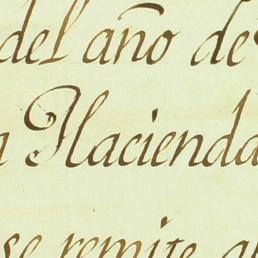 del año de
a Hacienda
se remite al